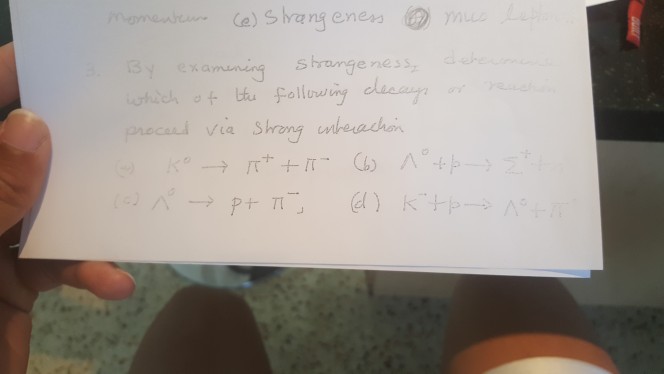 momentum (e) Strangeness muo lepton
3. By examining strangeness, determine
which of the following decays or reaction
proceed via strong interaction
(a) K⁰ → π⁺ + π⁻ (b) Λ⁰ + p → Σ⁺ +
(c) Λ⁰ → p + π⁻, (d) K⁻ + p → Λ⁰ + π